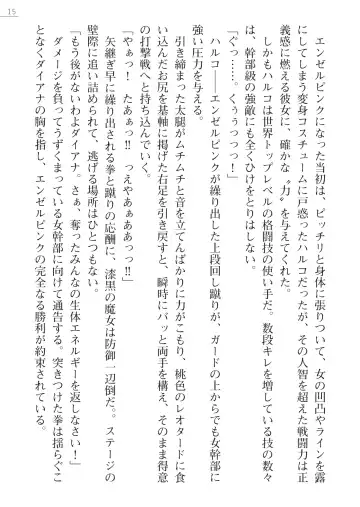 15
エンゼルピンクになった当初は、ピッチリと身体に張りついて、女の凹凸やラインを露
にしてしまう変身コスチュームに戸惑ったハルコだったが、その人智を超えた戦闘力は正
義感に燃える彼女に、確かな〝力〟を与えてくれた。
しかもハルコは世界トップレベルの格闘技の使い手だ。数段キレを増している技の数々
は、幹部級の強敵にも全くひけをとりはしない。
「ぐっ……。くうぅっっっ！」
ハルコ――エンゼルピンクが繰り出した上段回し蹴りが、ガードの上から女幹部に
強い圧力を与える。
引き締まった太腿がムチムチと音を立てんばかりに力がこもり、桃色のレオタードに食
い込んだお尻を基軸に掲げた右足を引き戻すと、瞬時にバッと両手を構え、そのまま得意
の打撃戦へと持ち込んでいく。
「やぁっ！　たあぁっ!!　っえやあぁああっ!!」
矢継ぎ早に繰り出される拳と蹴りの応酬に、漆黒の魔女は防御一辺倒だ。ステージの
壁際に追い詰められて、逃げる場所はひとつもない。
「もう後がないわよダイアナ。さぁ、奪ったみんなの生体エネルギーを返しなさい！」
ダメージを負ってうずくまっている女幹部に向けて通告する。突きつけた拳は揺らぐこ
となくダイアナの胸を指し、エンゼルピンクの完全なる勝利が約束されている。